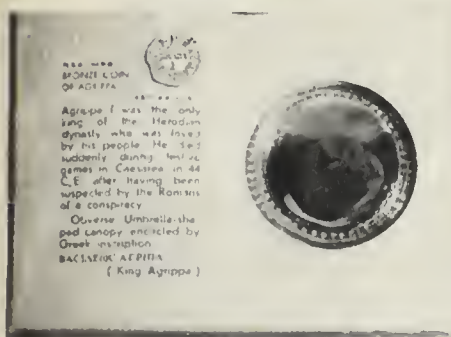 BRONZE COIN
OF AGRIPPA
Agrippa I was the only
king of the Herodian
dynasty who was loved
by his people He died
suddenly during festive
games in Caesarea in 44
C.E after having been
suspected by the Romans
of a conspiracy
Obverse Umbrella-sha
ped canopy encircled by
Greek inscription
( King Agrippa )